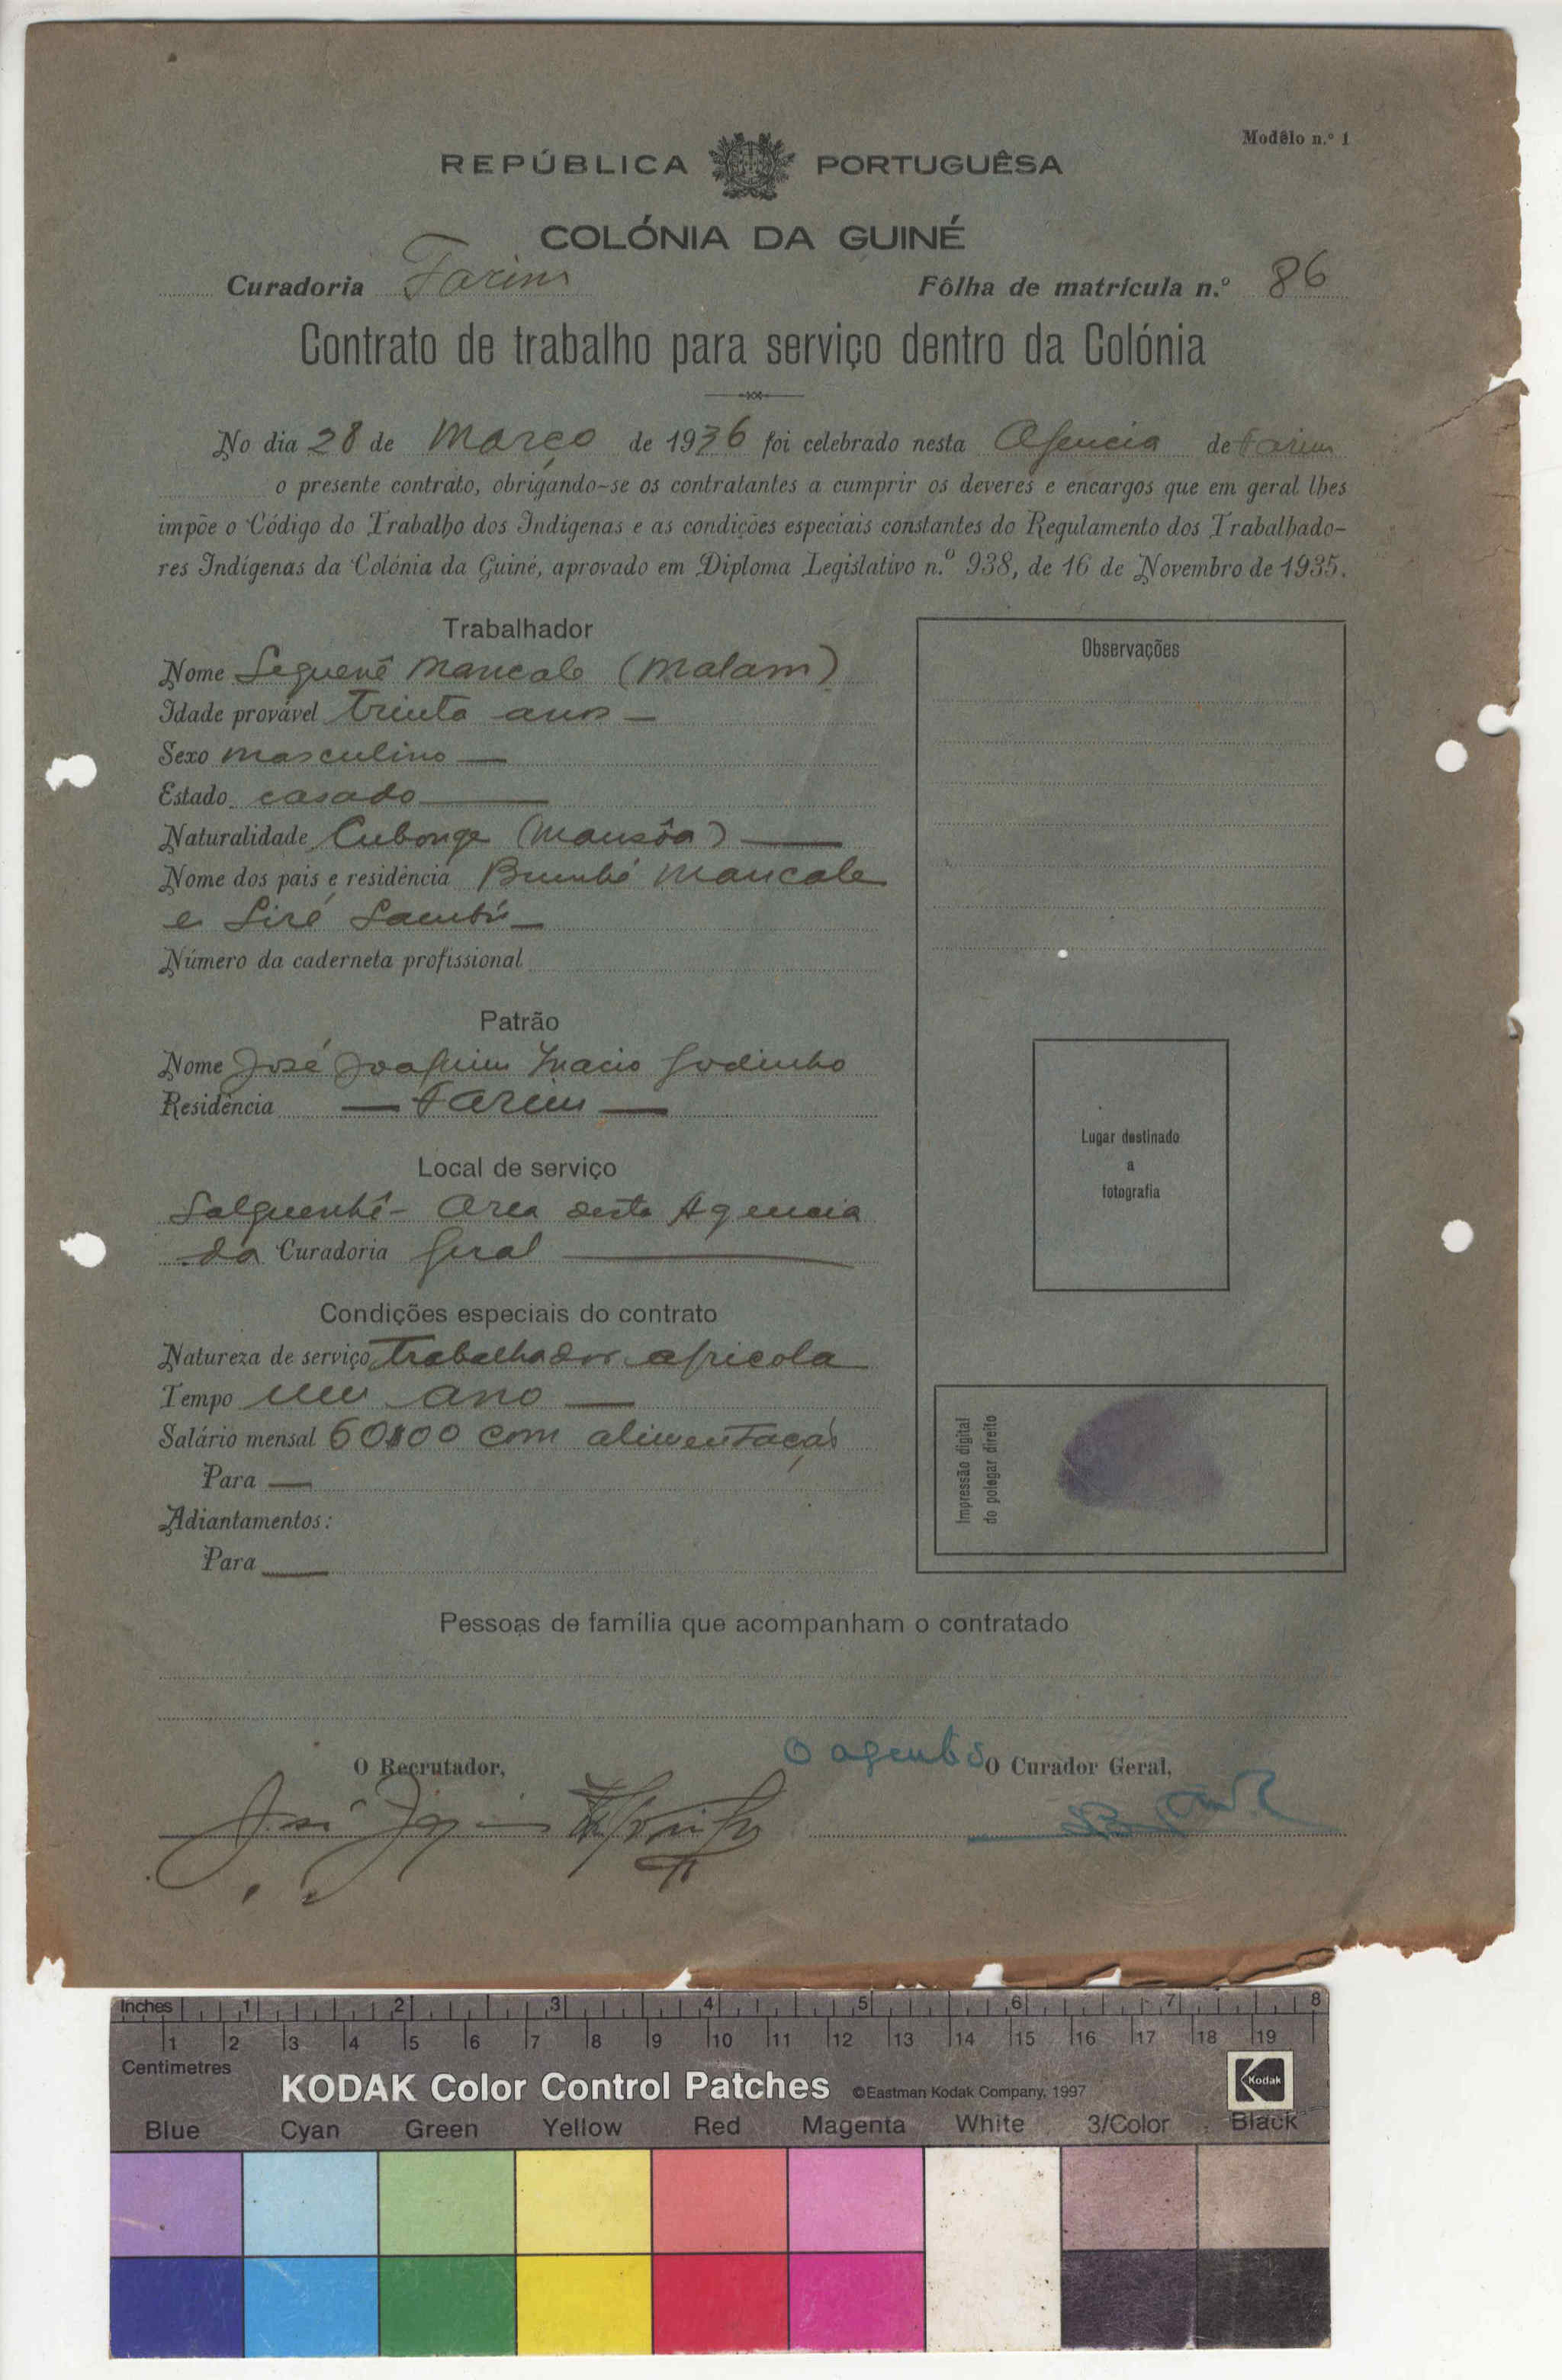 Modêlo n.º 1
REPÚBLICA PORTUGUÊSA
COLÓNIA DA GUINÉ
Curadoria Farim Fôlha de matrícula n.º 86
Contrato de trabalho para serviço dentro da Colónia
No dia 28 de Março de 1936 foi celebrado nesta Agencia de Farim
o presente contrato, obrigando-se os contratantes a cumprir os deveres e encargos que em geral lhes
impõe o Código do Trabalho dos Indígenas e as condições especiais constantes do Regulamento dos Trabalhado-
res Indígenas da Colónia da Guiné, aprovado em Diploma Legislativo n.º 938, de 16 de Novembro de 1935.
Trabalhador
Nome Seguenê Mancale (Malam)
Idade provável Trinta anos —
Sexo masculino —
Estado casado —
Naturalidade Cubonge (Mansôa) —
Nome dos pais e residência Mancale
e Siré
Número da caderneta profissional
Patrão
Nome José Joaquim Inacio Godinho
Residência — Farim —
Local de serviço
Salquenhê - Area desta Agencia
da Curadoria Geral —
Condições especiais do contrato
Natureza de serviço Trabalhador agricola
Tempo um ano —
Salário mensal 60$00 com alimentação
Para —
Adiantamentos:
Para —
Observações
Lugar destinado
a
fotografia
Impressão digital
do polegar direito
Pessoas de família que acompanham o contratado
O Recrutador,
O agente do O Curador Geral,
Inches 1 2 3 4 5 6 7 8
1 2 3 4 5 6 7 8 9 10 11 12 13 14 15 16 17 18 19
Centimetres
KODAK Color Control Patches ©Eastman Kodak Company, 1997 Kodak
Blue Cyan Green Yellow Red Magenta White 3/Color Black